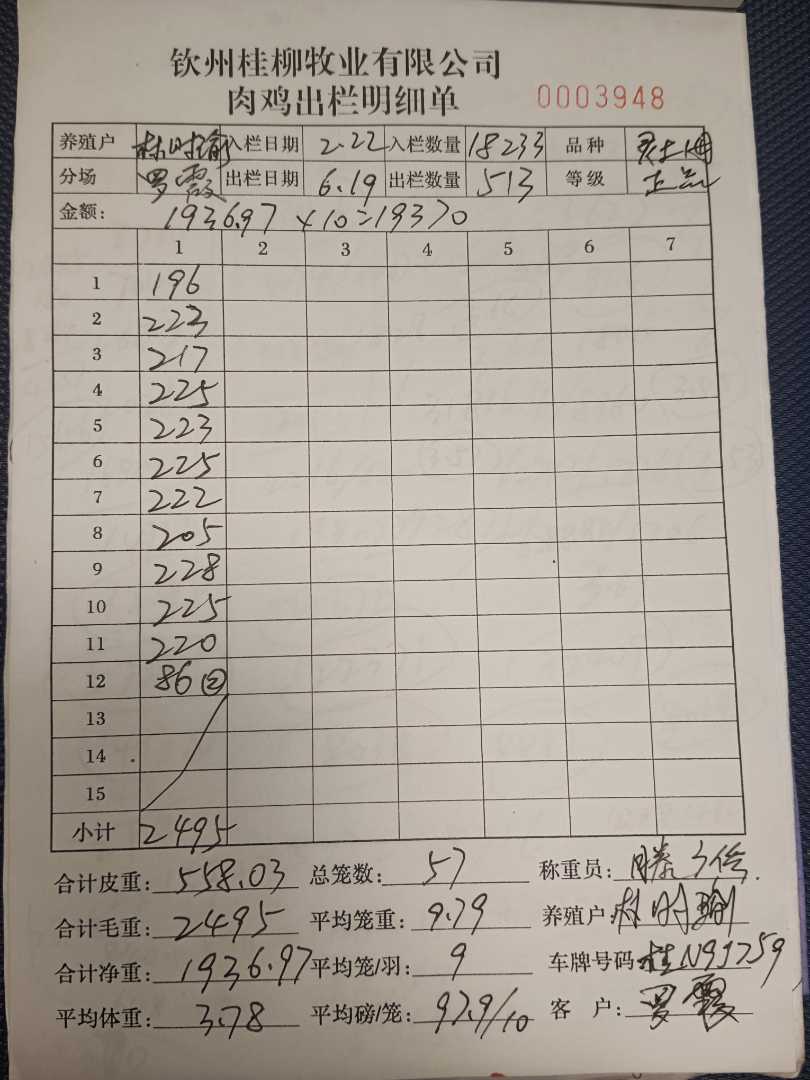 钦州桂柳牧业有限公司
肉鸡出栏明细单 0003948
养殖户 林时瑜 入栏日期 2.22 入栏数量 18233 品种
分场 罗霞 出栏日期 6.19 出栏数量 513 等级 正品
金额: 1936.97 x 10=19370
1 2 3 4 5 6 7
1 196
2 223
3 217
4 225
5 223
6 225
7 222
8 205
9 228
10 225
11 220
12 86 ②
13
14
15
小计 2495
合计皮重: 558.03 总笼数: 57 称重员: 滕
合计毛重: 2495 平均笼重: 9.79 养殖户: 林时瑜
合计净重: 1936.97 平均笼/羽: 9 车牌号码: 桂N9J759
平均体重: 3.78 平均磅/笼: 97.9/10 客 户: 罗霞